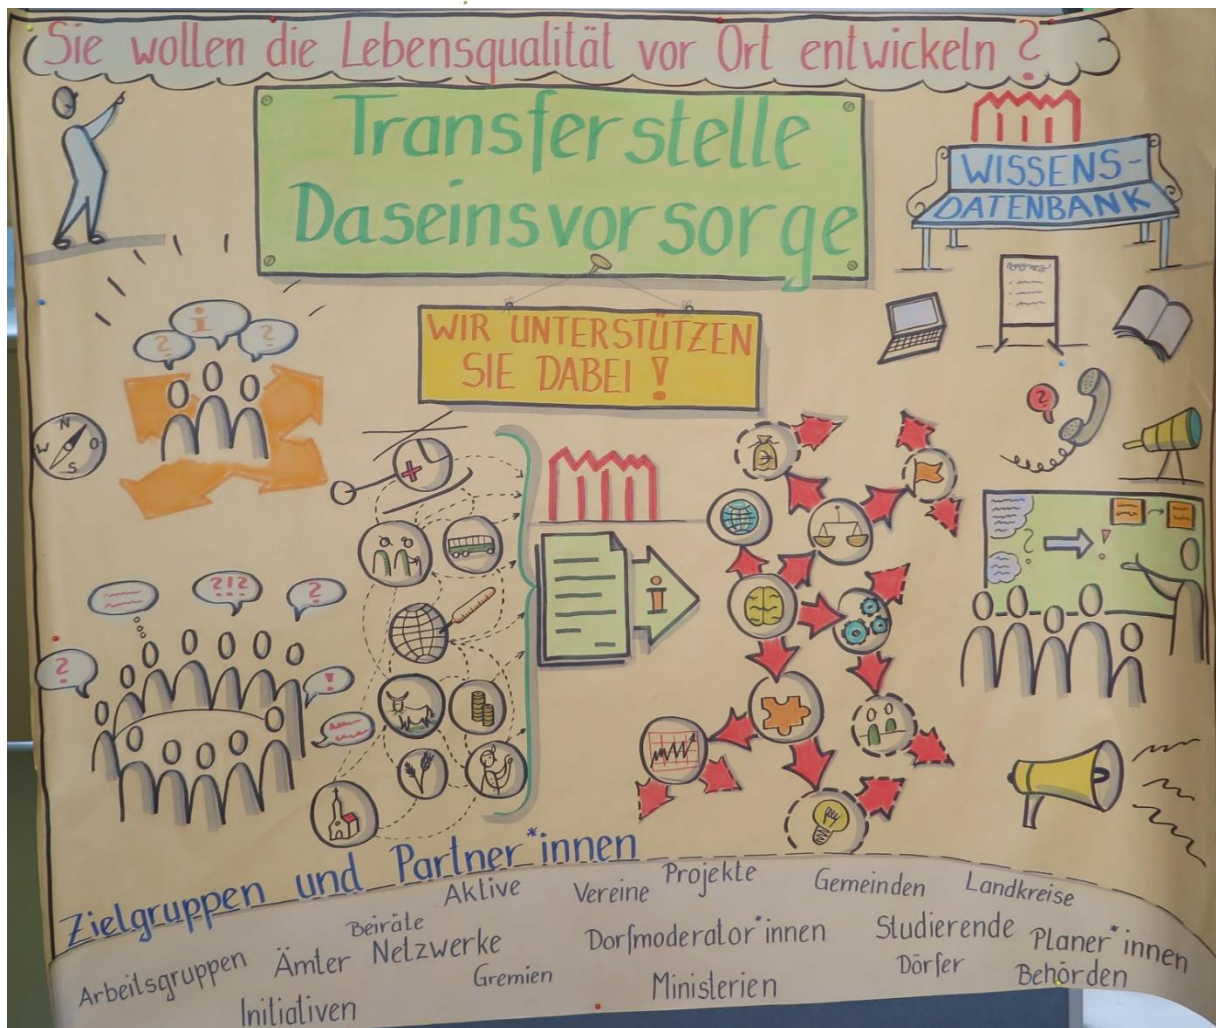 Sie wollen die Lebensqualität vor Ort entwickeln ?
Transferstelle
Daseinsvorsorge
WISSENS-
DATENBANK
WIR UNTERSTÜTZEN
SIE DABEI !
? i ?
N
W O
S
?
i
?!?
?
?
!
? !
Zielgruppen und Partner*innen
Aktive Vereine Projekte Gemeinden Landkreise
Beiräte
Arbeitsgruppen Ämter Netzwerke Dorfmoderator*innen Studierende Planer*innen
Gremien Dörfer Behörden
Initiativen Ministerien